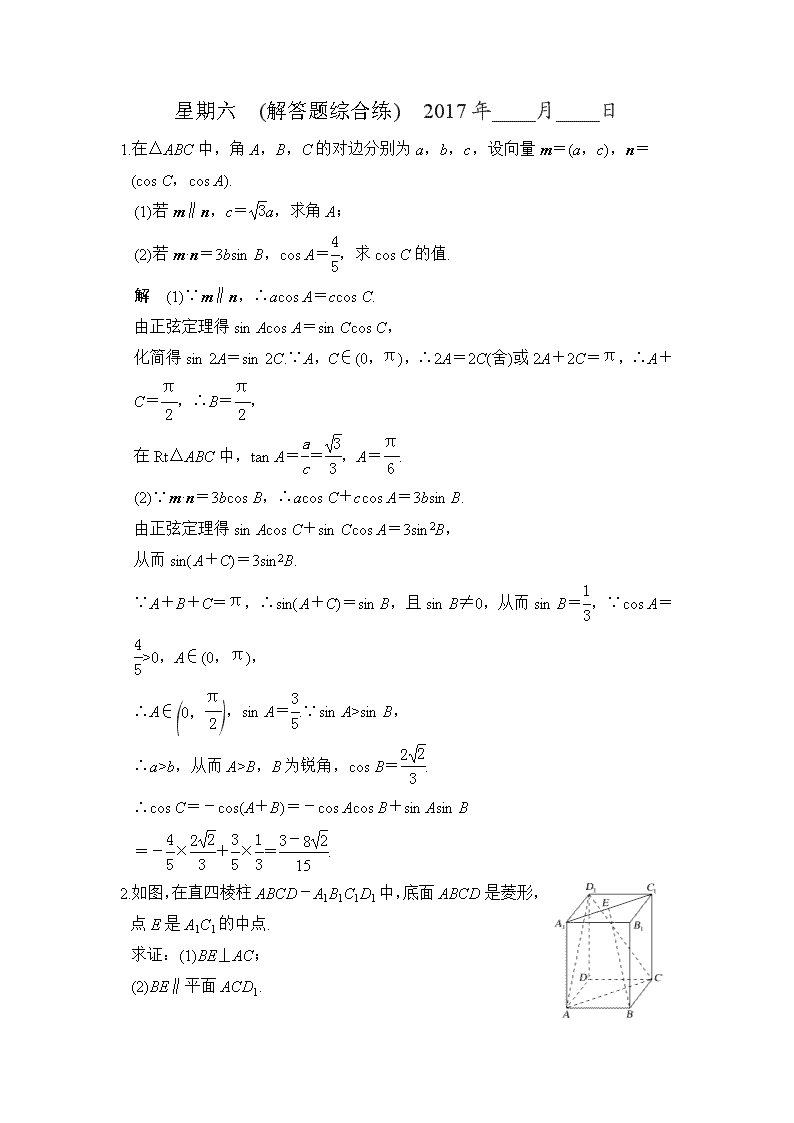 星期六　(解答题综合练)　2017年____月____日
1.在△ABC中，角A，B，C的对边分别为a，b，c，设向量m＝(a，c)，n＝
(cos C，cos A).
(1)若m∥n，c＝√3a，求角A；
(2)若m·n＝3bsin B，cos A＝4/5，求cos C的值.
解　(1)∵m∥n，∴acos A＝ccos C.
由正弦定理得sin Acos A＝sin Ccos C，
化简得sin 2A＝sin 2C.∵A，C∈(0，π)，∴2A＝2C(舍)或2A＋2C＝π，∴A＋
C＝π/2，∴B＝π/2，
在Rt△ABC中，tan A＝a/c＝√3/3，A＝π/6.
(2)∵m·n＝3bcos B，∴acos C＋ccos A＝3bsin B.
由正弦定理得sin Acos C＋sin Ccos A＝3sin²B，
从而sin(A＋C)＝3sin²B.
∵A＋B＋C＝π，∴sin(A＋C)＝sin B，且sin B≠0，从而sin B＝1/3，∵cos A＝
4/5>0，A∈(0，π)，
∴A∈(0，π/2)，sin A＝3/5.∵sin A>sin B，
∴a>b，从而A>B，B为锐角，cos B＝2√2/3.
∴cos C＝－cos(A＋B)＝－cos Acos B＋sin Asin B
＝－4/5×2√2/3＋3/5×1/3＝(3－8√2)/15.
2.如图，在直四棱柱ABCD－A₁B₁C₁D₁中，底面ABCD是菱形，
点E是A₁C₁的中点.
求证：(1)BE⊥AC；
(2)BE∥平面ACD₁.
D₁ C₁
E
A₁ B₁
D C
A B